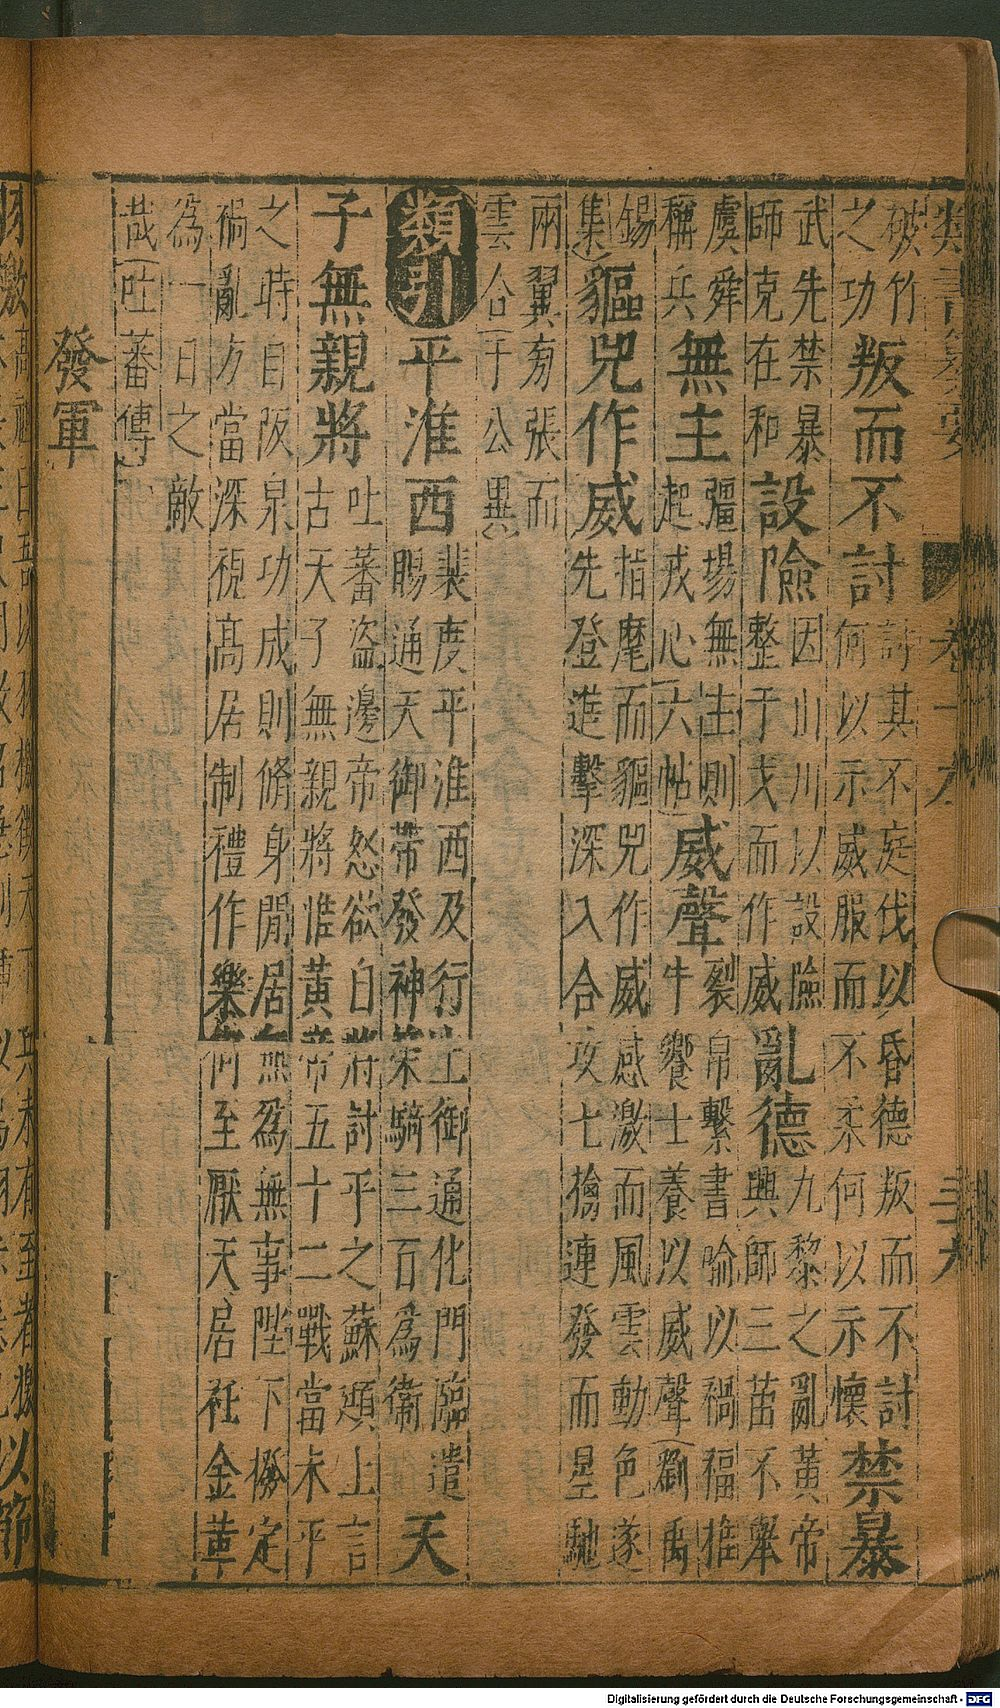 類書纂要
破竹
之功
叛而不討
討其不庭伐以昏德叛而不討
何以示威服而不柔何以示懷
禁暴
武先禁暴
師克在和
設險
因山川以設險
整干戈而作威
亂德
九黎之亂黃帝
興師三苗不率
虞舜
稱兵
無主
彊場無主則
起戎心(六帖)
威聲
裂帛繫書喻以禍福椎
牛饗士養以威聲(劉禹
錫
集)
貙兕作威
指麾而貙兕作威感激而風雲動色遂
先登進擊深入合攻七擒連發而星馳
兩翼旁張而
雲合(于公異)
類引
平淮西
裴度平淮西及行上御通化門臨遣
賜通天御帶發神策騎三百爲衞
天
子無親將
吐蕃盜邊帝怒欲自將討平之蘇頲上言
古天子無親將惟黃帝五十二戰當未平
之時自阪泉功成則脩身閒居無爲無事陛下撥定
禍亂方當深視高居制禮作樂何至厭天居衽金革
爲一日之敵
哉(吐蕃傳)
發軍
Digitalisierung gefördert durch die Deutsche Forschungsgemeinschaft - DFG